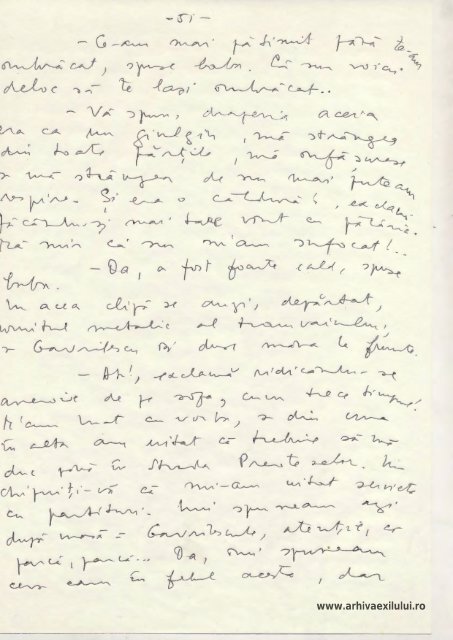 -51-
- Ce-am mai pătimit până te-am
îmbrăcat, spuse baba. Că nu voiai
deloc să te lași îmbrăcat..
- Vă spun, draperia aceia
era ca un giulgiu, mă strângea
din toate părțile, mă înfășurase
și mă strângea de nu mai puteam
respira. Și era o căldură!, exclamă
făcându-și mai tare vânt cu pălăria.
Mă mir că nu m'am sufocat!..
- Da, a fost foarte cald, spuse
baba.
În acea clipă se auzi, depărtat,
uruitul metalic al tramvaiului,
și Gavrilescu își duse mâna la frunte.
- Ah!, exclamă ridicându-se
anevoie de pe sofa, cum trece timpul!
M'am luat cu vorba, și din una
în alta am uitat că trebuie să mă
duc până în Strada Preoteselor. În-
chipuiți-vă că mi-am uitat servieta
cu partituri. Îmi spuneam azi
după masă: Gavrilescule, atenție, că
parcă, parcă... Da, îmi spuneam
ceva cam în felul acesta, dar
www.arhivaexilului.ro